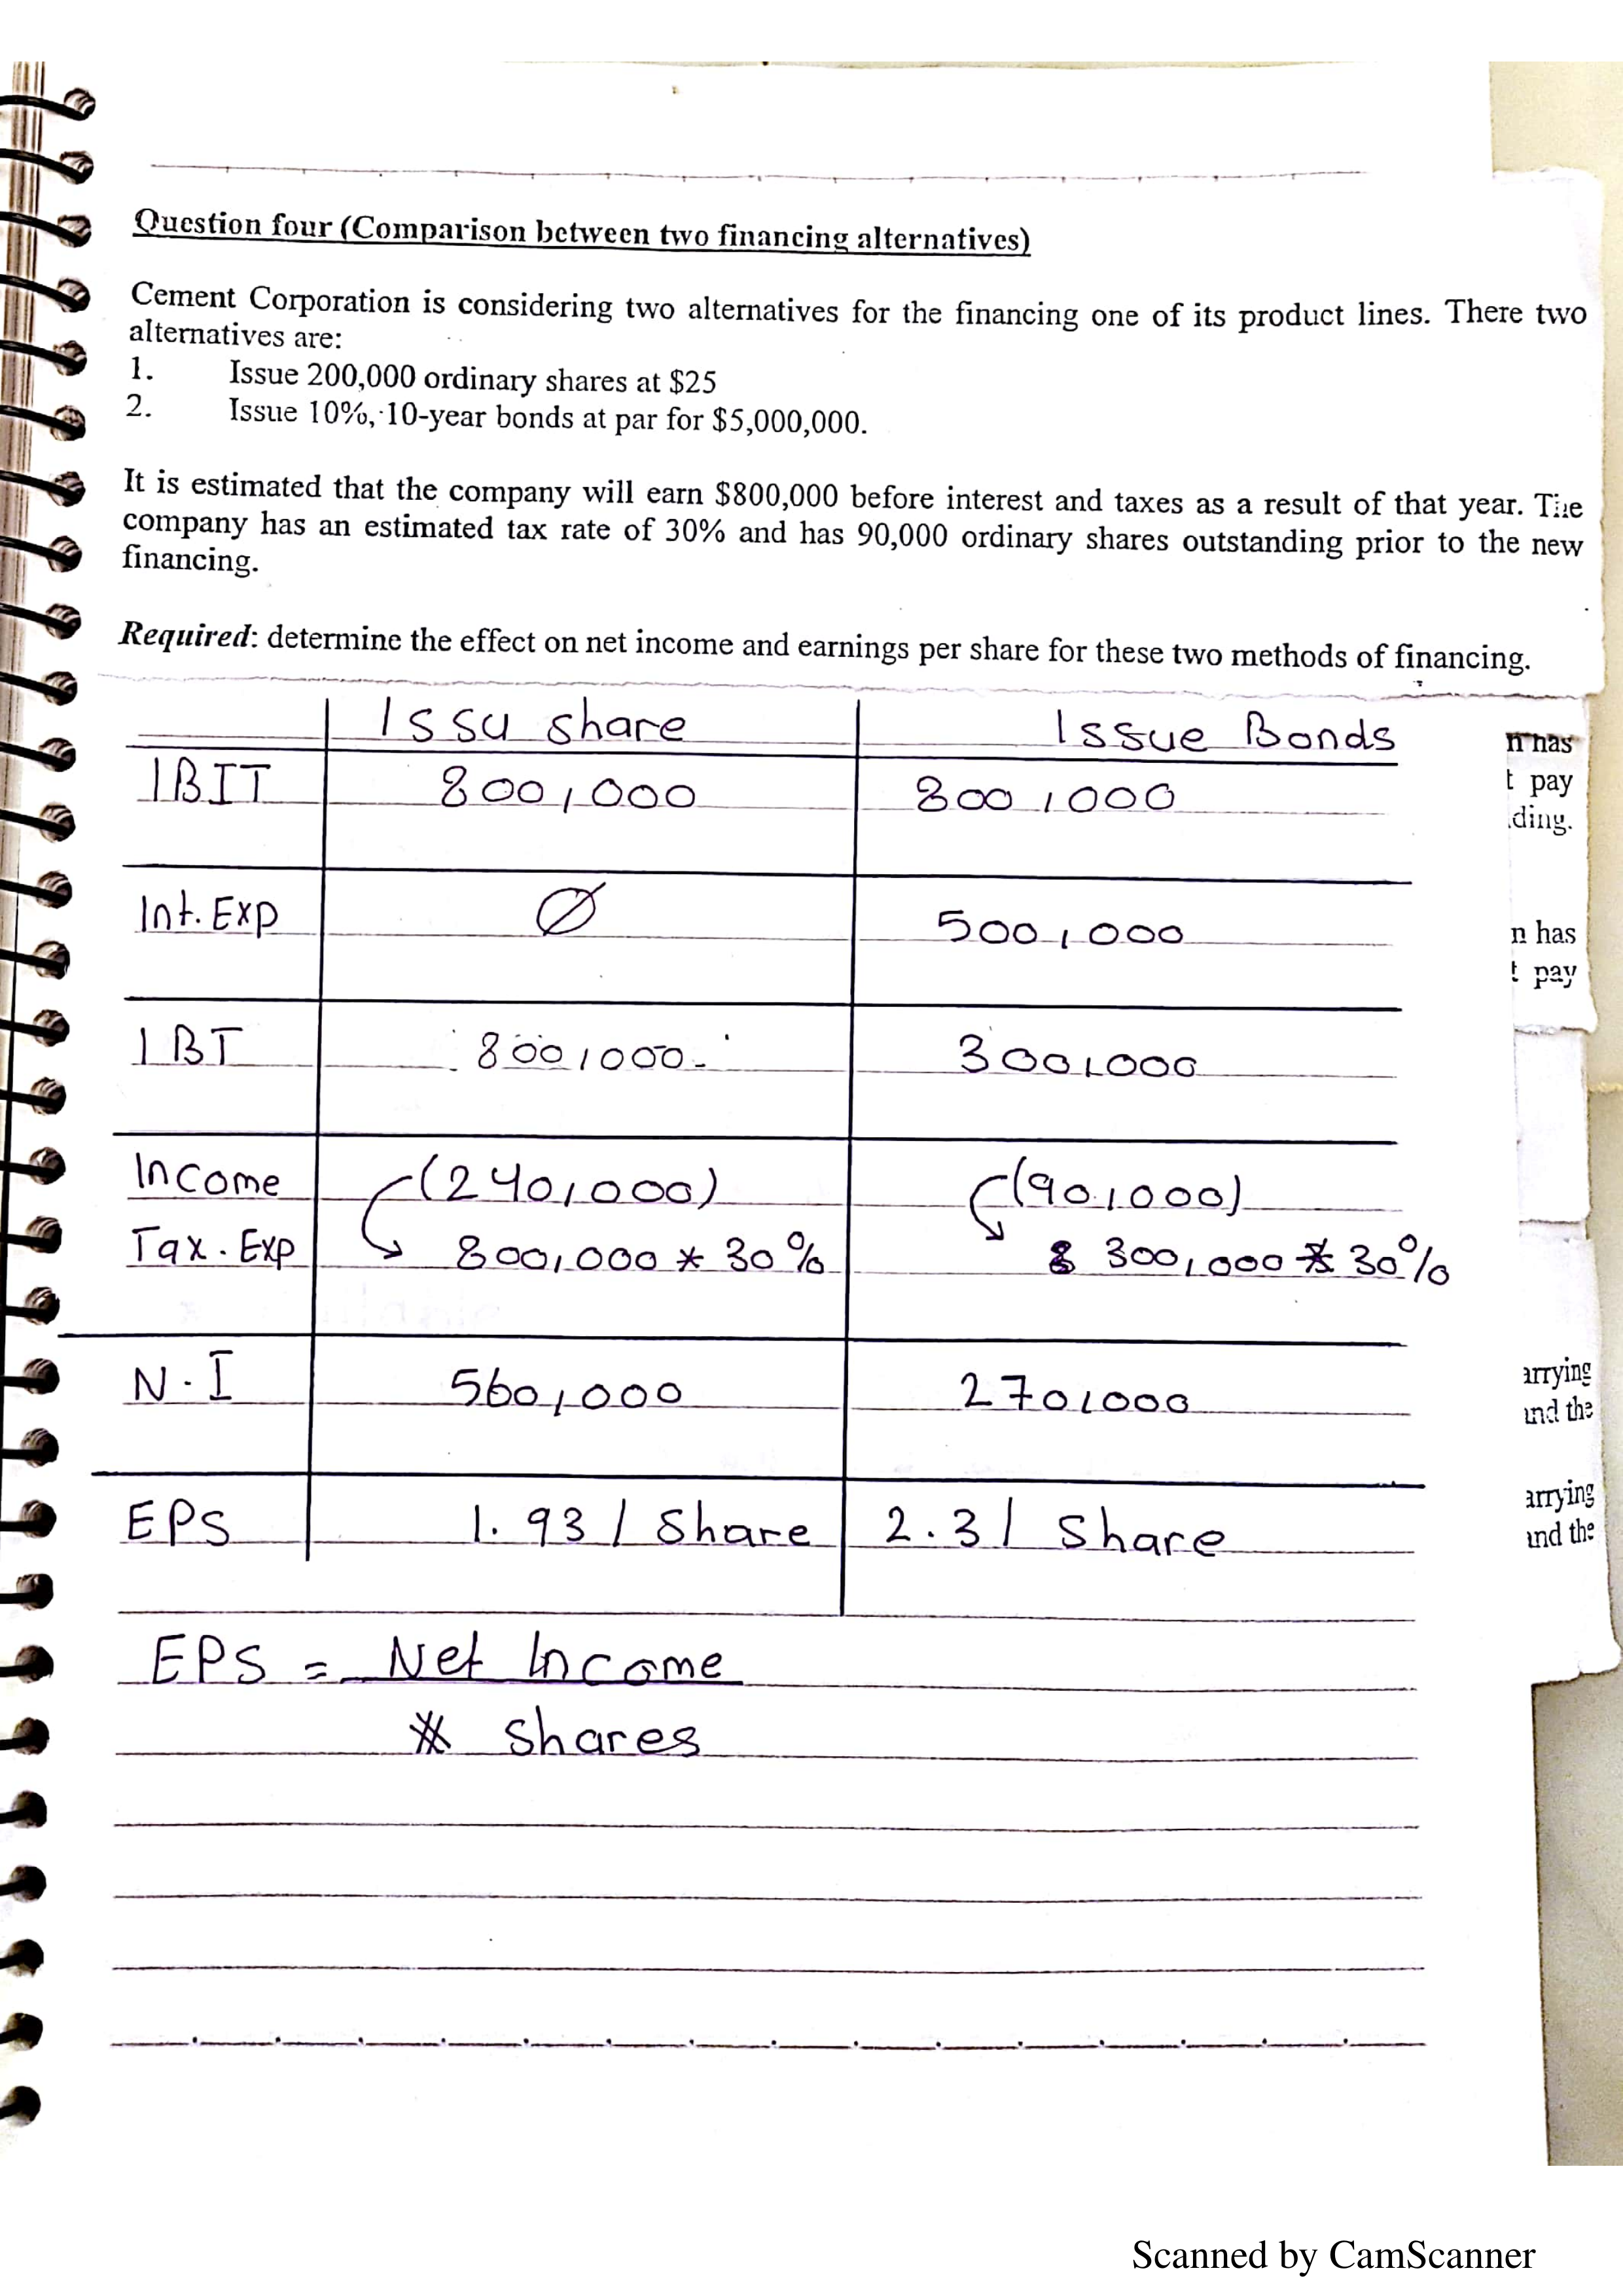 Question four (Comparison between two financing alternatives)
Cement Corporation is considering two alternatives for the financing one of its product lines. There two
alternatives are:
1. Issue 200,000 ordinary shares at $25
2. Issue 10%, 10-year bonds at par for $5,000,000.
It is estimated that the company will earn $800,000 before interest and taxes as a result of that year. The
company has an estimated tax rate of 30% and has 90,000 ordinary shares outstanding prior to the new
financing.
Required: determine the effect on net income and earnings per share for these two methods of financing.
Issu share Issue Bonds
n has
IBIT 800,000 800,000
t pay
ding.
Int. Exp Ø 500,000
n has
t pay
IBT 800,000 300,000
Income (240,000) (90,000)
Tax. Exp 800,000 * 30% 300,000 * 30%
N.I 560,000 270,000
arrying
and the
EPS 1.93 / Share 2.3 / Share
arrying
and the
EPS = Net Income
# shares
Scanned by CamScanner